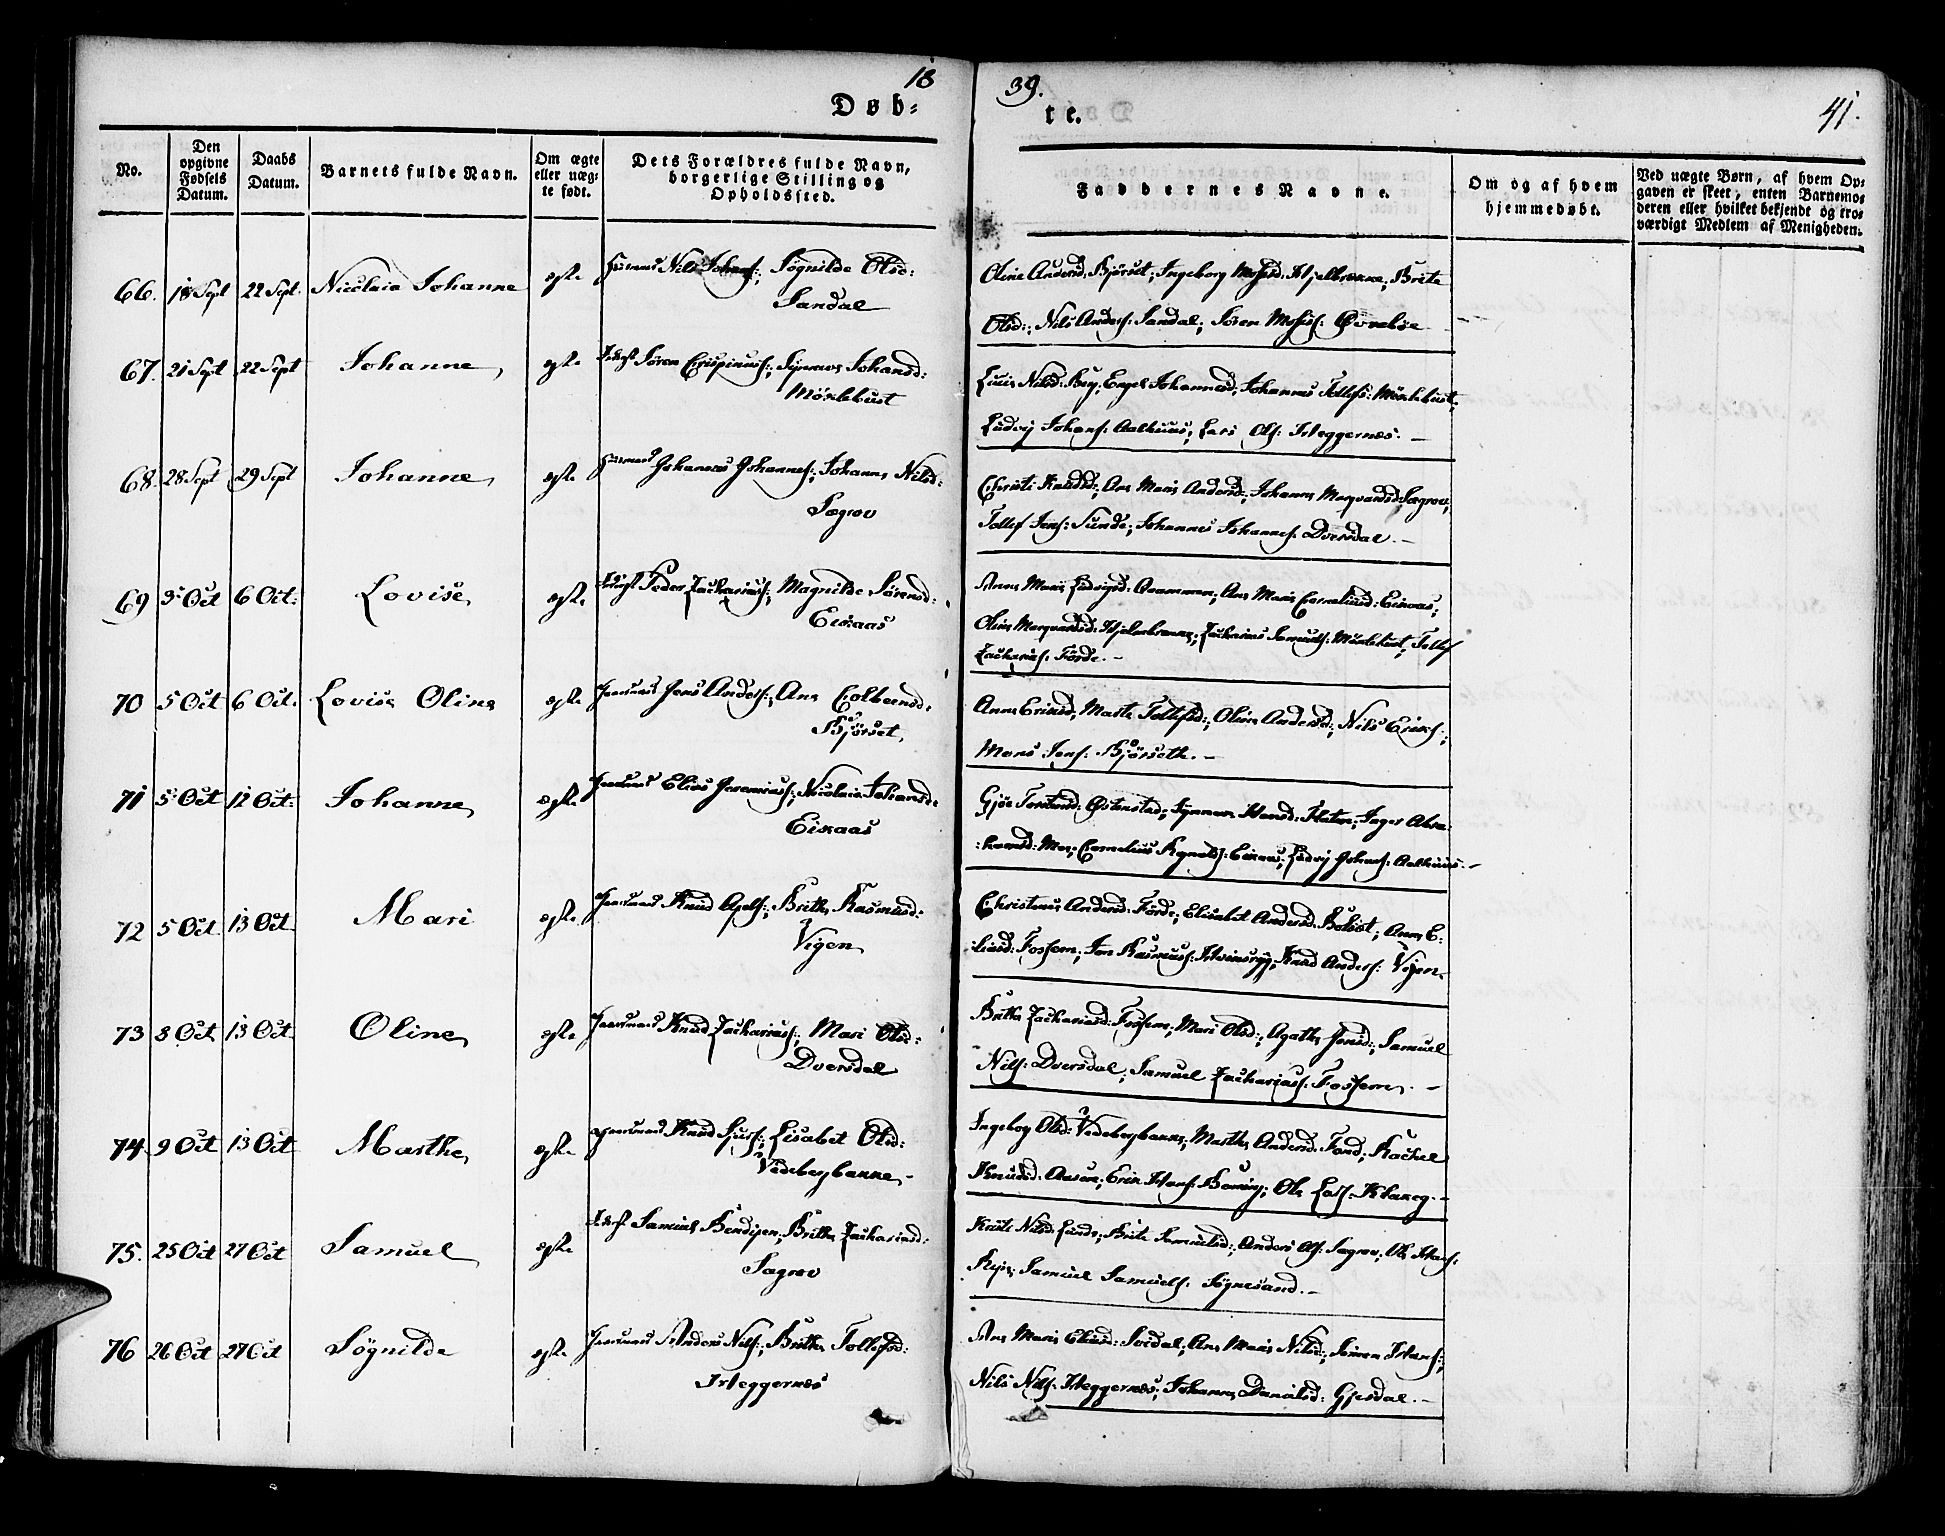 18
39.
Døb-
te.
41.
No.
Den opgivne Fødsels Datum.
Daabs Datum.
Barnets fulde Navn.
Om ægte eller uægte født.
Dets Forældres fulde Navn, borgerlige Stilling og Opholdssted.
Faddernes Navne.
Om og af hvem hjemmedøbt.
Ved uægte Børn, af hvem Opgaven er skeet, enten Barnemoderen eller hvilket bekjendt og troværdigt Medlem af Menigheden.
66. 18 Sept 22 Sept. Nicolaia Johanne egte Huusmand Nils Johans:, Søgnilde Olsd:
Sandal
Oline Andersd: Bjørset; Ingeborg Mosesd: Hjelbrænne, Brite
Olsd:, Nils Anders: Sandal; Søren Moses:
67. 21 Sept 22 Sept Johanne egte Søren Crispinuss:, Synneve Johansd:
Mörkhust
Nilsd: Berg; Engel Johannesd; Johannes Tollefs:
Ludvig Johans: Aalhuus; Lars Ols: Heggernæs.-
68. 28 Sept 29 Sept Johanne egte Huusmand Johannes Johannes:, Johanne Nilsd:
Sægrov
Christi Knudsd:, Ane Marie Andersd:, Johanne Sægrov,
Tollef Jens: Sunde; Johannes Johannes: Dversdal.-
69 5 Oct 6 Oct: Lovise egte Peder Zachariass:, Magnilde Sörensd:
Eikaas
Anne Marie Ludvigsd: Ane Marie Corneliusd: Eikaas,
Zacharias Samuels: Tollef
Zacharias: Förde.-
70 5 Oct 6 Oct. Lovise Oline egte Gaardmand Jens Anders:, Ane Colbensd:
Bjørset,
Anne Eriksd, Marte Tollefsd:, Oline Andersd:, Nils Eriks:,
Mons Jens: Bjørseth.-
71 5 Oct 12 Oct: Johanne egte Gaardmand Elias Jeremiass:, Nicolaia Johansd:
Eikaas
Synneve Hansd: Inger Abra-
hamsd: Cornelius Eikaas; Ludvig Johans: Aalhuus.-
72 5 Oct 13 Oct Mari egte Gaardmand Knud Britha Rasmusd:
Vigen
Andersd: Förde; Elisabet Andersd: Anne E-
liasd: Fossem; Jon Rasmus: Knud Anders: Vigen
73 8 Oct 13 Oct Oline egte Gaardmand Knud Zachariass:, Mari Olsd:
Dversdal
Britha Zachariasd: Fossem; Mari Olsd:, Agathe Jensd:, Samuel
Nils: Dversdal; Samuel Zachariass: Fossem.-
74. 9 Oct 13 Oct Marthe egte Gaardmand Knud Sjurs:, Lisabet Olsd:
Vedebergbanne.-
Ingeborg Olsd: Vedebergbanne; Marthe Andersd: Rachel
Knudsd: Aasen; Erik Hans: Ole Lass: Klakeg.-
75. 25 Oct 27 Oct Samuel egte Samuel Bendixen, Britha Zachariasd:
Sagrov
Nilsd: Lunde, Brite Samuelsd:, Anders Ols: Sagrov, Ole Hans:
Samuel Samuels: Søgnesand.-
76 26 Oct 27 Oct Søgnilde egte Gaardmand Anders Nils:, Britha Tollefsd:
Heggernæs
Ane Marie Eliasd: Svidal; Ane Marie Nilsd:, Simon Hans:,
Nils Nils: Heggernæs; Johanne Danielsd: Gjesdal.-